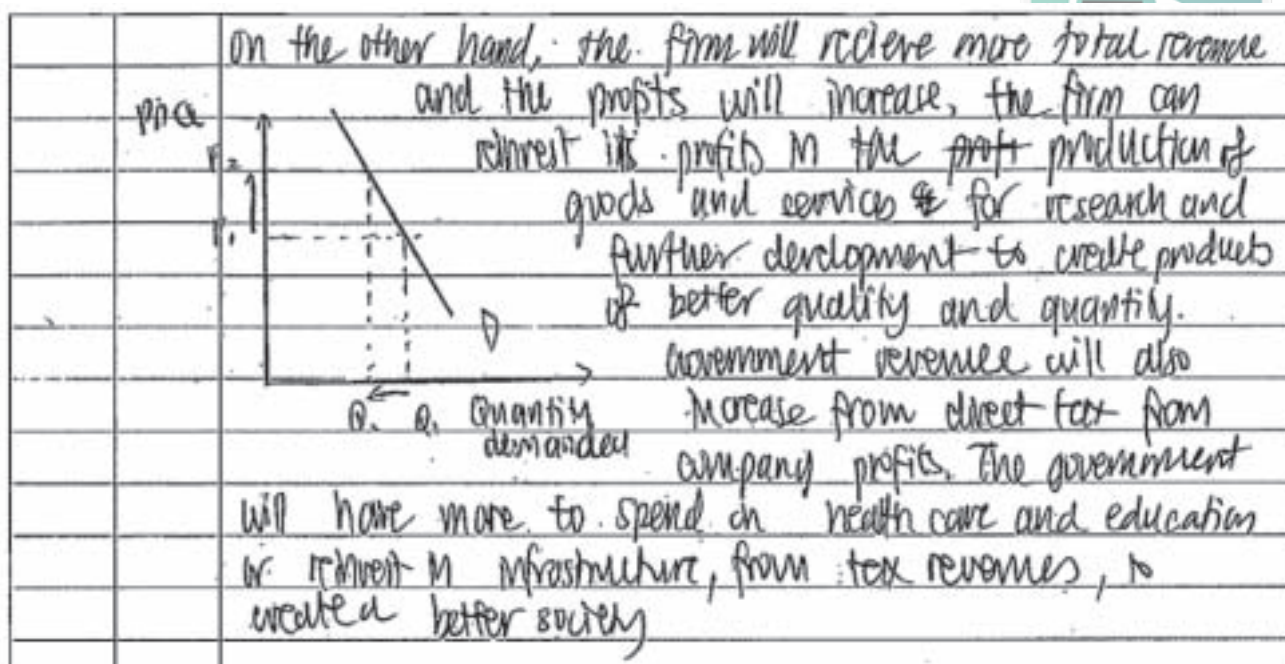 on the other hand, the firm will recieve more total revenue
and the profits will increase, the firm can
reinvest its profits in the production of
goods and services for research and
further development to create products
of better quality and quantity.
Government revenue will also
increase from direct tax from
company profits. The government
will have more to spend on health care and education
or reinvest in infrastructure, from tax revenues, to
created better society
P₂
P₁
D
Q₁ Quantity
demanded